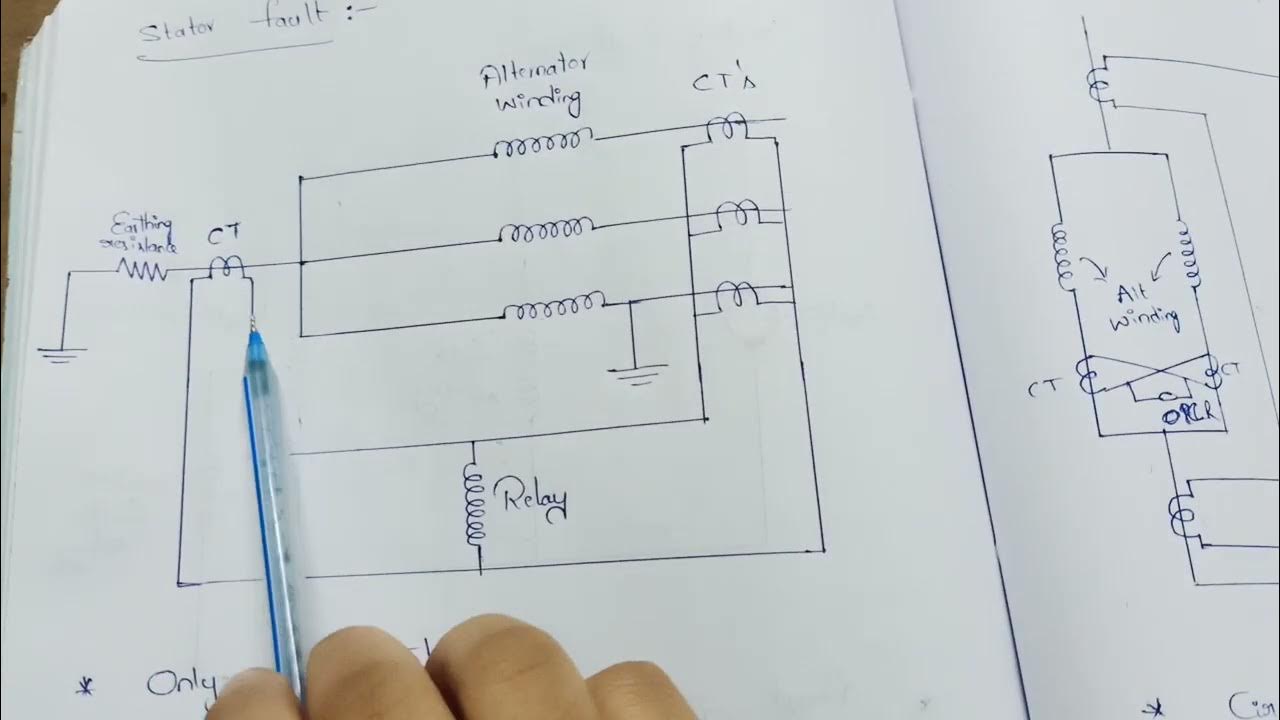 Stator fault :-
Alternator
winding
CT's
Earthing
resistance
CT
Relay
* Only
Alt
winding
CT
CT
*